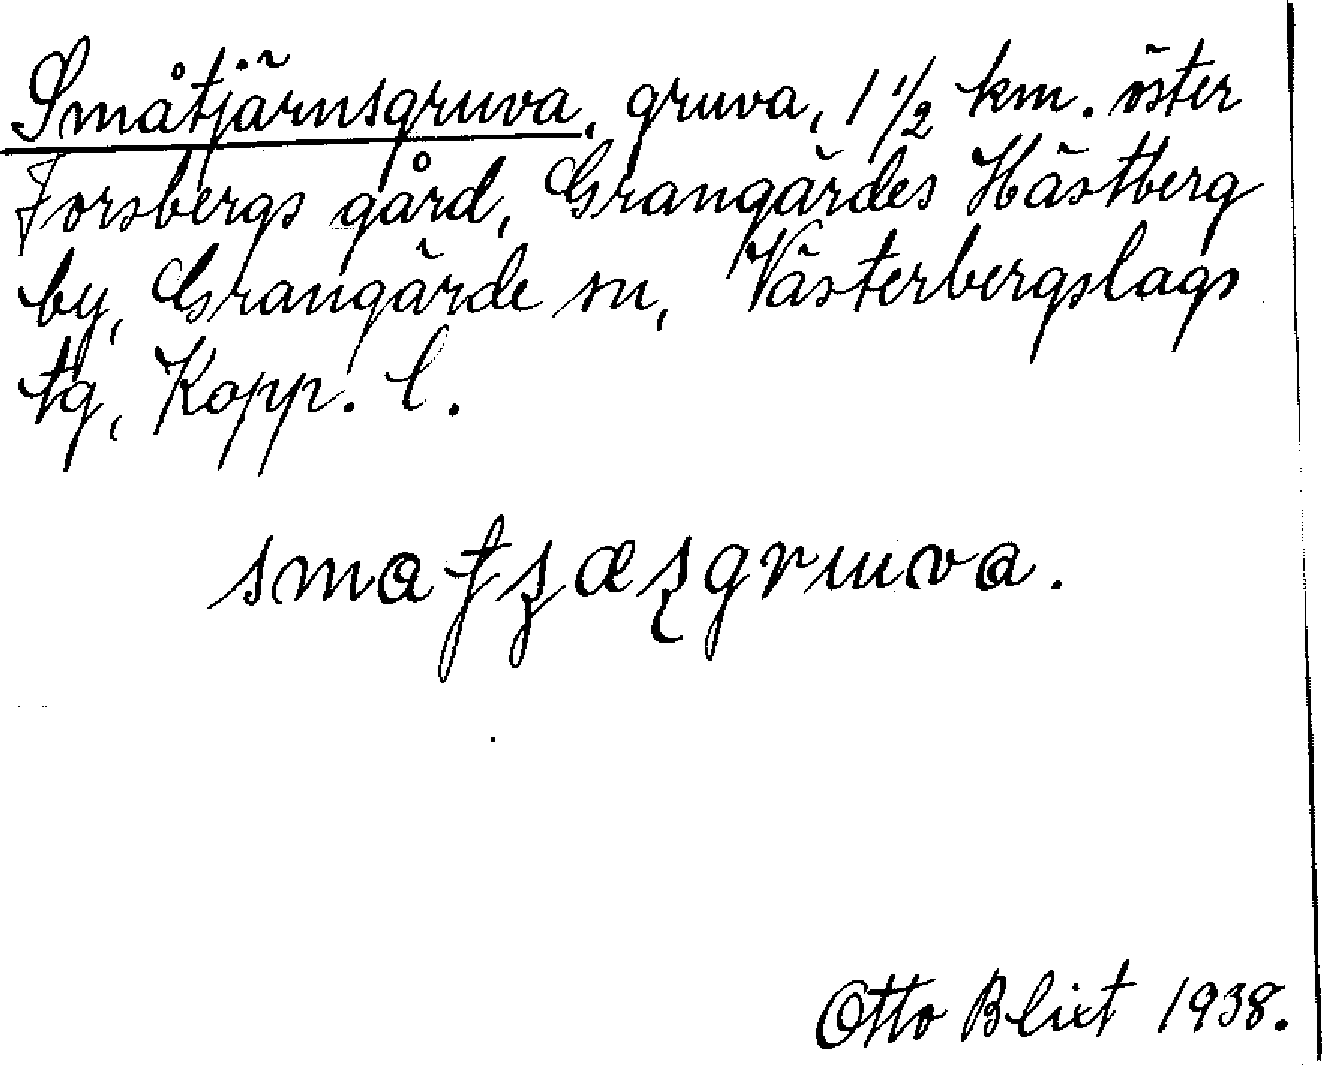 Småtjärnsgruva, gruva, 1 1/2 km. öster
Forsbergs gård, Grangärdes Hästberg
by, Grangärde sn, Västerbergslags
tg, Kopp. l.
Otto Blixt 1938.